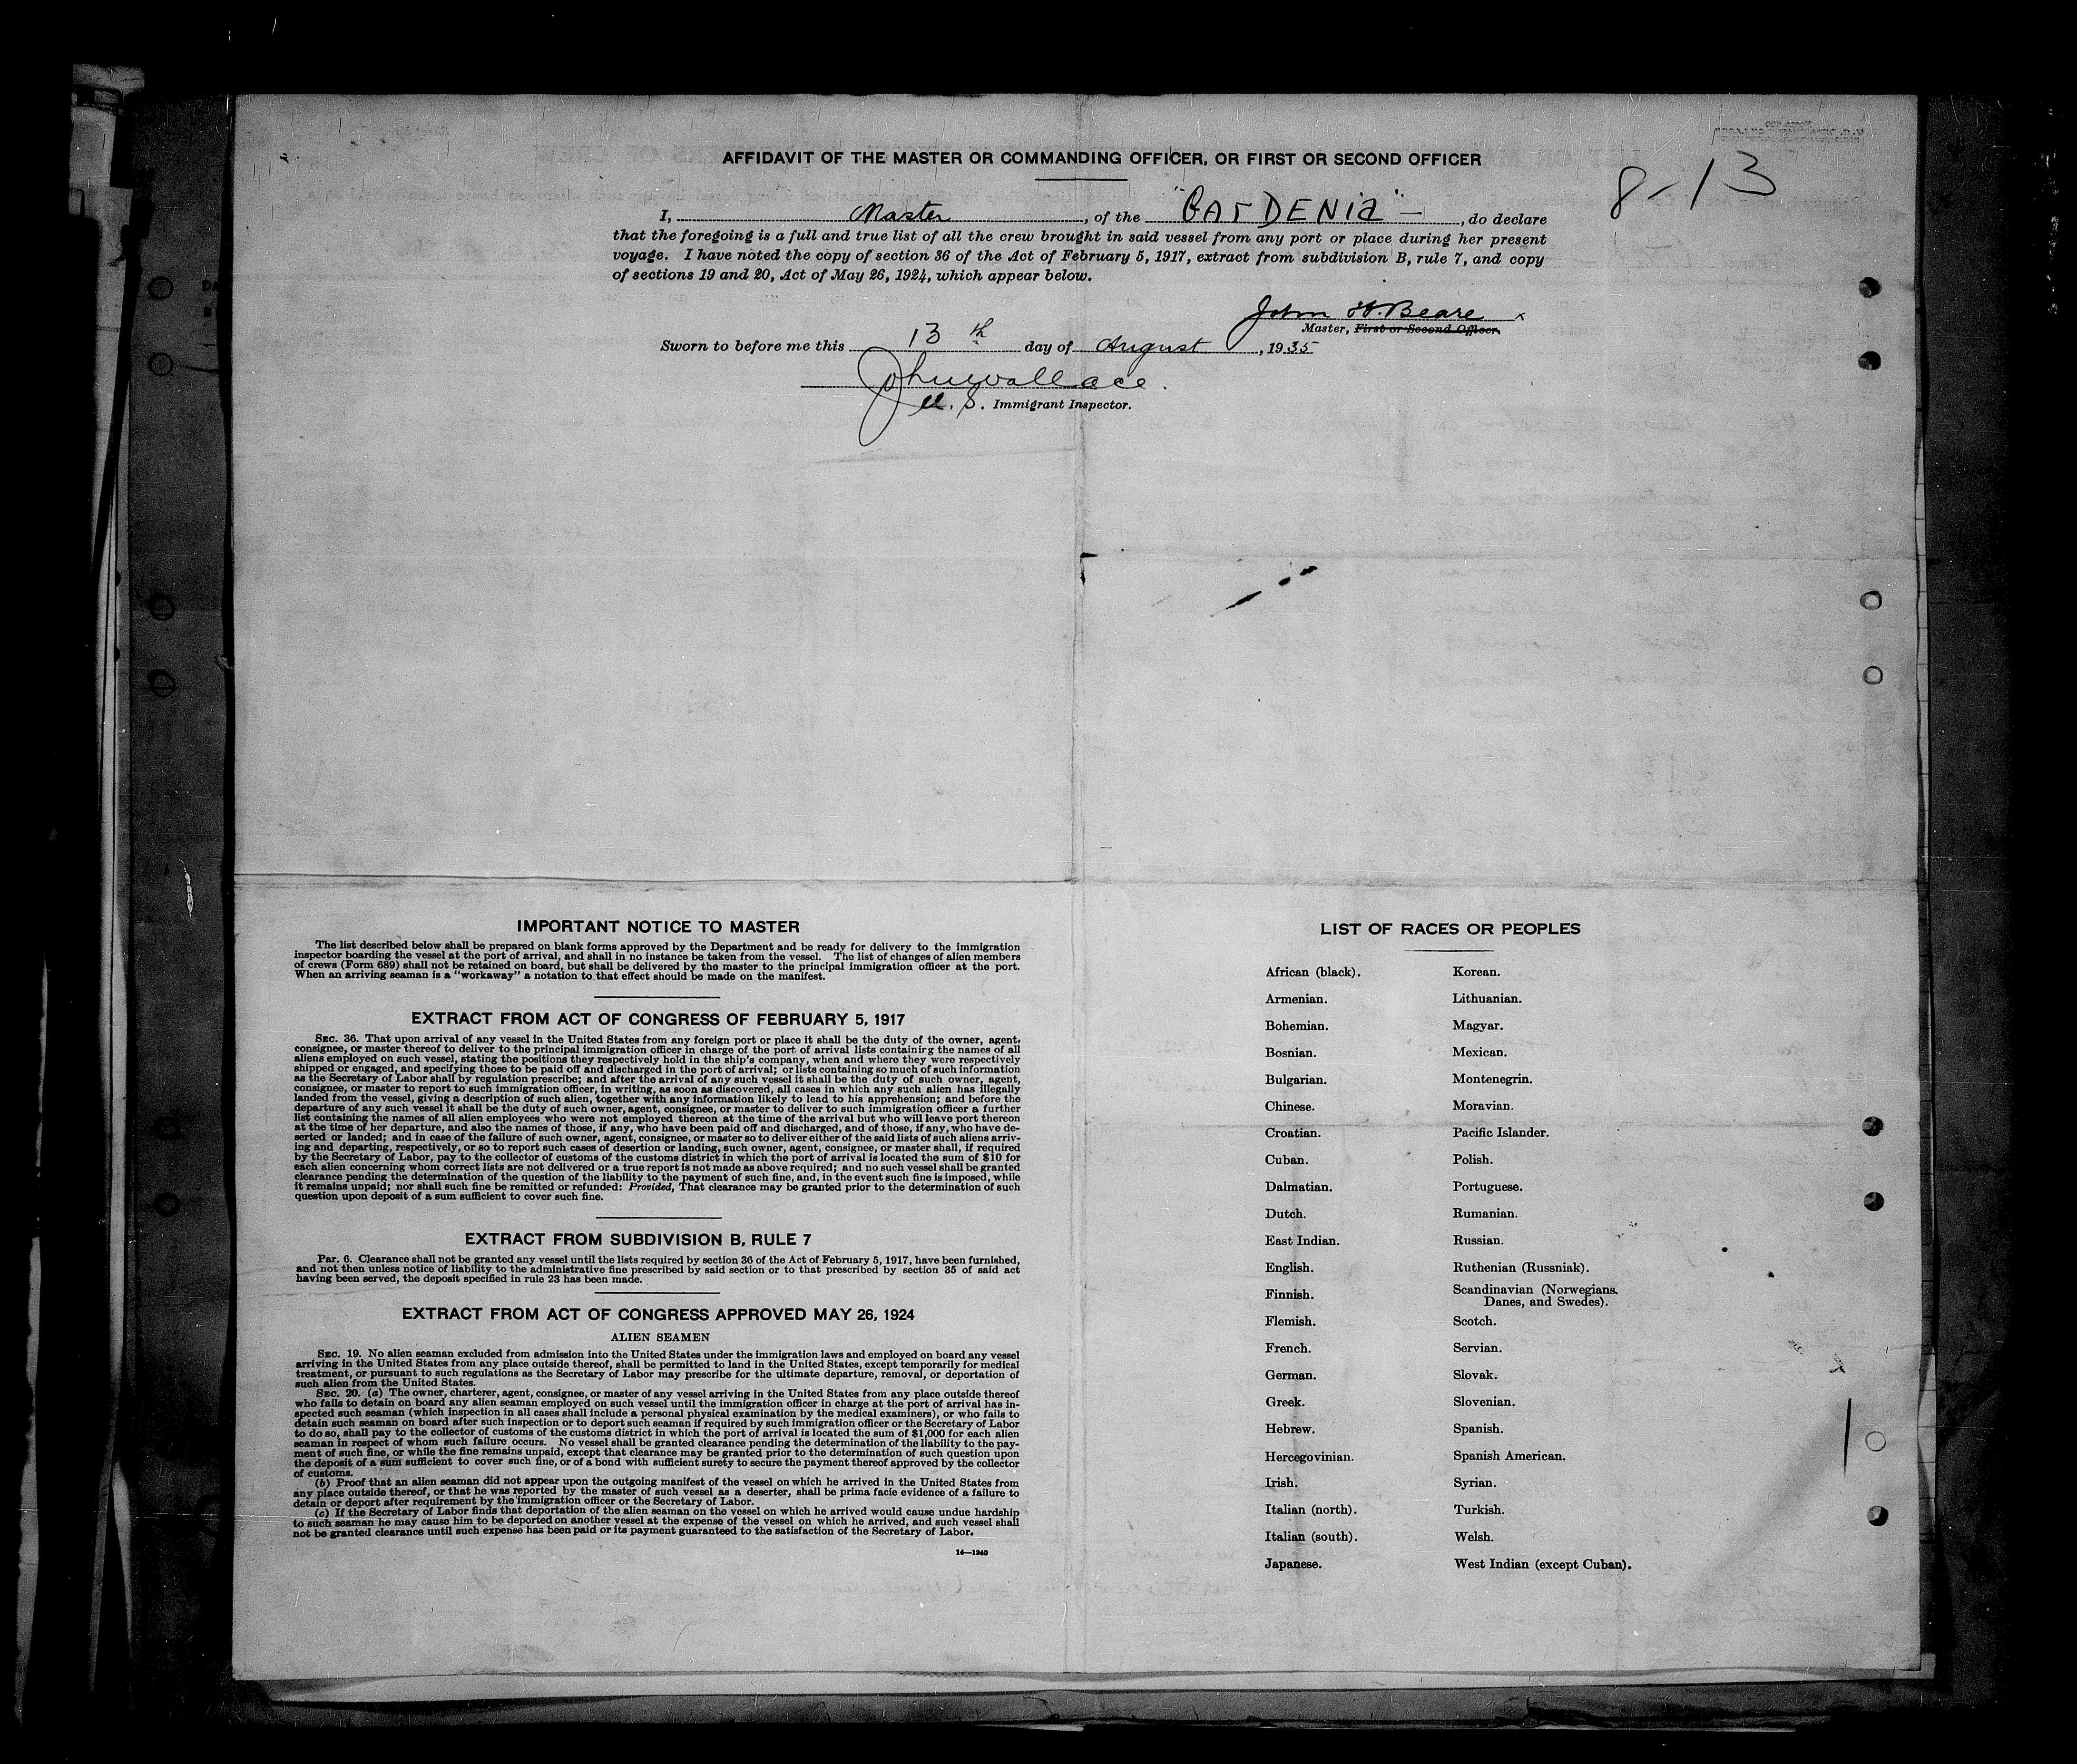 AFFIDAVIT OF THE MASTER OR COMMANDING OFFICER, OR FIRST OR SECOND OFFICER
8-13
I, Master, of the "GarDENia" —, do declare
that the foregoing is a full and true list of all the crew brought in said vessel from any port or place during her present
voyage. I have noted the copy of section 36 of the Act of February 5, 1917, extract from subdivision B, rule 7, and copy
of sections 19 and 20, Act of May 26, 1924, which appear below.
John W. Beare x
Master, First or Second Officer.
Sworn to before me this 13th day of August, 1935
John Wallace.
U. S. Immigrant Inspector.
IMPORTANT NOTICE TO MASTER
The list described below shall be prepared on blank forms approved by the Department and be ready for delivery to the immigration
inspector boarding the vessel at the port of arrival, and shall in no instance be taken from the vessel. The list of changes of alien members
of crews (Form 689) shall not be retained on board, but shall be delivered by the master to the principal immigration officer at the port.
When an arriving seaman is a "workaway" a notation to that effect should be made on the manifest.
EXTRACT FROM ACT OF CONGRESS OF FEBRUARY 5, 1917
SEC. 36. That upon arrival of any vessel in the United States from any foreign port or place it shall be the duty of the owner, agent,
consignee, or master thereof to deliver to the principal immigration officer in charge of the port of arrival lists containing the names of all
aliens employed on such vessel, stating the positions they respectively hold in the ship's company, when and where they were respectively
shipped or engaged, and specifying those to be paid off and discharged in the port of arrival; or lists containing so much of such information
as the Secretary of Labor shall by regulation prescribe; and after the arrival of any such vessel it shall be the duty of such owner, agent,
consignee, or master to report to such immigration officer, in writing, as soon as discovered, all cases in which any such alien has illegally
landed from the vessel, giving a description of such alien, together with any information likely to lead to his apprehension; and before the
departure of any such vessel it shall be the duty of such owner, agent, consignee, or master to deliver to such immigration officer a further
list containing the names of all alien employees who were not employed thereon at the time of the arrival but who will leave port thereon
at the time of her departure, and also the names of those, if any, who have been paid off and discharged, and of those, if any, who have de-
serted or landed; and in case of the failure of such owner, agent, consignee, or master so to deliver either of the said lists of such aliens arriv-
ing and departing, respectively, or so to report such cases of desertion or landing, such owner, agent, consignee, or master shall, if required
by the Secretary of Labor, pay to the collector of customs of the customs district in which the port of arrival is located the sum of $10 for
each alien concerning whom correct lists are not delivered or a true report is not made as above required; and no such vessel shall be granted
clearance pending the determination of the question of the liability to the payment of such fine, and, in the event such fine is imposed, while
it remains unpaid; nor shall such fine be remitted or refunded: Provided, That clearance may be granted prior to the determination of such
question upon deposit of a sum sufficient to cover such fine.
EXTRACT FROM SUBDIVISION B, RULE 7
Par. 6. Clearance shall not be granted any vessel until the lists required by section 36 of the Act of February 5, 1917, have been furnished,
and not then unless notice of liability to the administrative fine prescribed by said section or to that prescribed by section 35 of said act
having been served, the deposit specified in rule 23 has been made.
EXTRACT FROM ACT OF CONGRESS APPROVED MAY 26, 1924
ALIEN SEAMEN
SEC. 19. No alien seaman excluded from admission into the United States under the immigration laws and employed on board any vessel
arriving in the United States from any place outside thereof, shall be permitted to land in the United States, except temporarily for medical
treatment, or pursuant to such regulations as the Secretary of Labor may prescribe for the ultimate departure, removal, or deportation of
such alien from the United States.
SEC. 20. (a) The owner, charterer, agent, consignee, or master of any vessel arriving in the United States from any place outside thereof
who fails to detain on board any alien seaman employed on such vessel until the immigration officer in charge at the port of arrival has in-
spected such seaman (which inspection in all cases shall include a personal physical examination by the medical examiners), or who fails to
detain such seaman on board after such inspection or to deport such seaman if required by such immigration officer or the Secretary of Labor
to do so, shall pay to the collector of customs of the customs district in which the port of arrival is located the sum of $1,000 for each alien
seaman in respect of whom such failure occurs. No vessel shall be granted clearance pending the determination of the liability to the pay-
ment of such fine, or while the fine remains unpaid, except that clearance may be granted prior to the determination of such question upon
the deposit of a sum sufficient to cover such fine, or of a bond with sufficient surety to secure the payment thereof approved by the collector
of customs.
(b) Proof that an alien seaman did not appear upon the outgoing manifest of the vessel on which he arrived in the United States from
any place outside thereof, or that he was reported by the master of such vessel as a deserter, shall be prima facie evidence of a failure to
detain or deport after requirement by the immigration officer or the Secretary of Labor.
(c) If the Secretary of Labor finds that deportation of the alien seaman on the vessel on which he arrived would cause undue hardship
to such seaman he may cause him to be deported on another vessel at the expense of the vessel on which he arrived, and such vessel shall
not be granted clearance until such expense has been paid or its payment guaranteed to the satisfaction of the Secretary of Labor.
14—1240
LIST OF RACES OR PEOPLES
African (black).
Armenian.
Bohemian.
Bosnian.
Bulgarian.
Chinese.
Croatian.
Cuban.
Dalmatian.
Dutch.
East Indian.
English.
Finnish.
Flemish.
French.
German.
Greek.
Hebrew.
Hercegovinian.
Irish.
Italian (north).
Italian (south).
Japanese.
Korean.
Lithuanian.
Magyar.
Mexican.
Montenegrin.
Moravian.
Pacific Islander.
Polish.
Portuguese.
Rumanian.
Russian.
Ruthenian (Russniak).
Scandinavian (Norwegians,
Danes, and Swedes).
Scotch.
Servian.
Slovak.
Slovenian.
Spanish.
Spanish American.
Syrian.
Turkish.
Welsh.
West Indian (except Cuban).